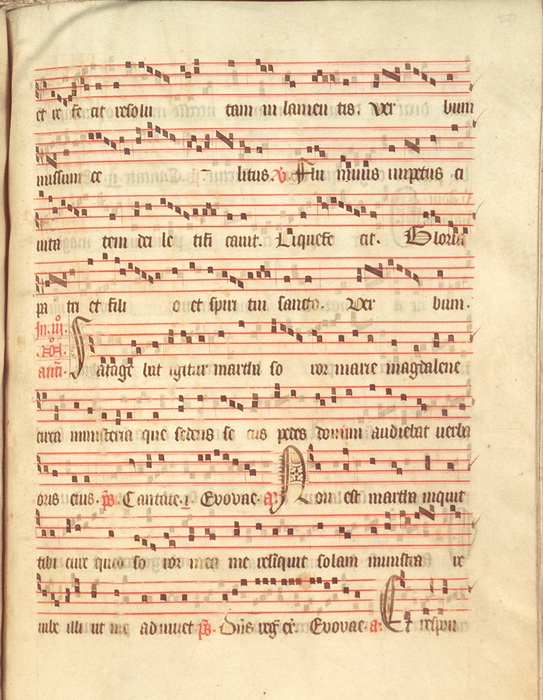 et re fe cit resolu tam in lamen tis. Ver bum
missum ce litus. V Flu minis impetus ci
uita tem dei le tifi cauit. Liquefe cit. Gloria
pa tri et fili o et spiri tui sancto. Ver bum.
In .iii. no
añ. Satage bat igitur martha so ror marie magdalene
circa ministeria que sedens se cus pedes domini audiebat verba
oris eius. ps. Cantate. i. Evovae. a. Non est martha inquit
tibi cure quod so ror mea me reliquit solam ministra re
iube illi ut me adiuuet ps. Dñs reg. ex. Evovae. a. Et respon